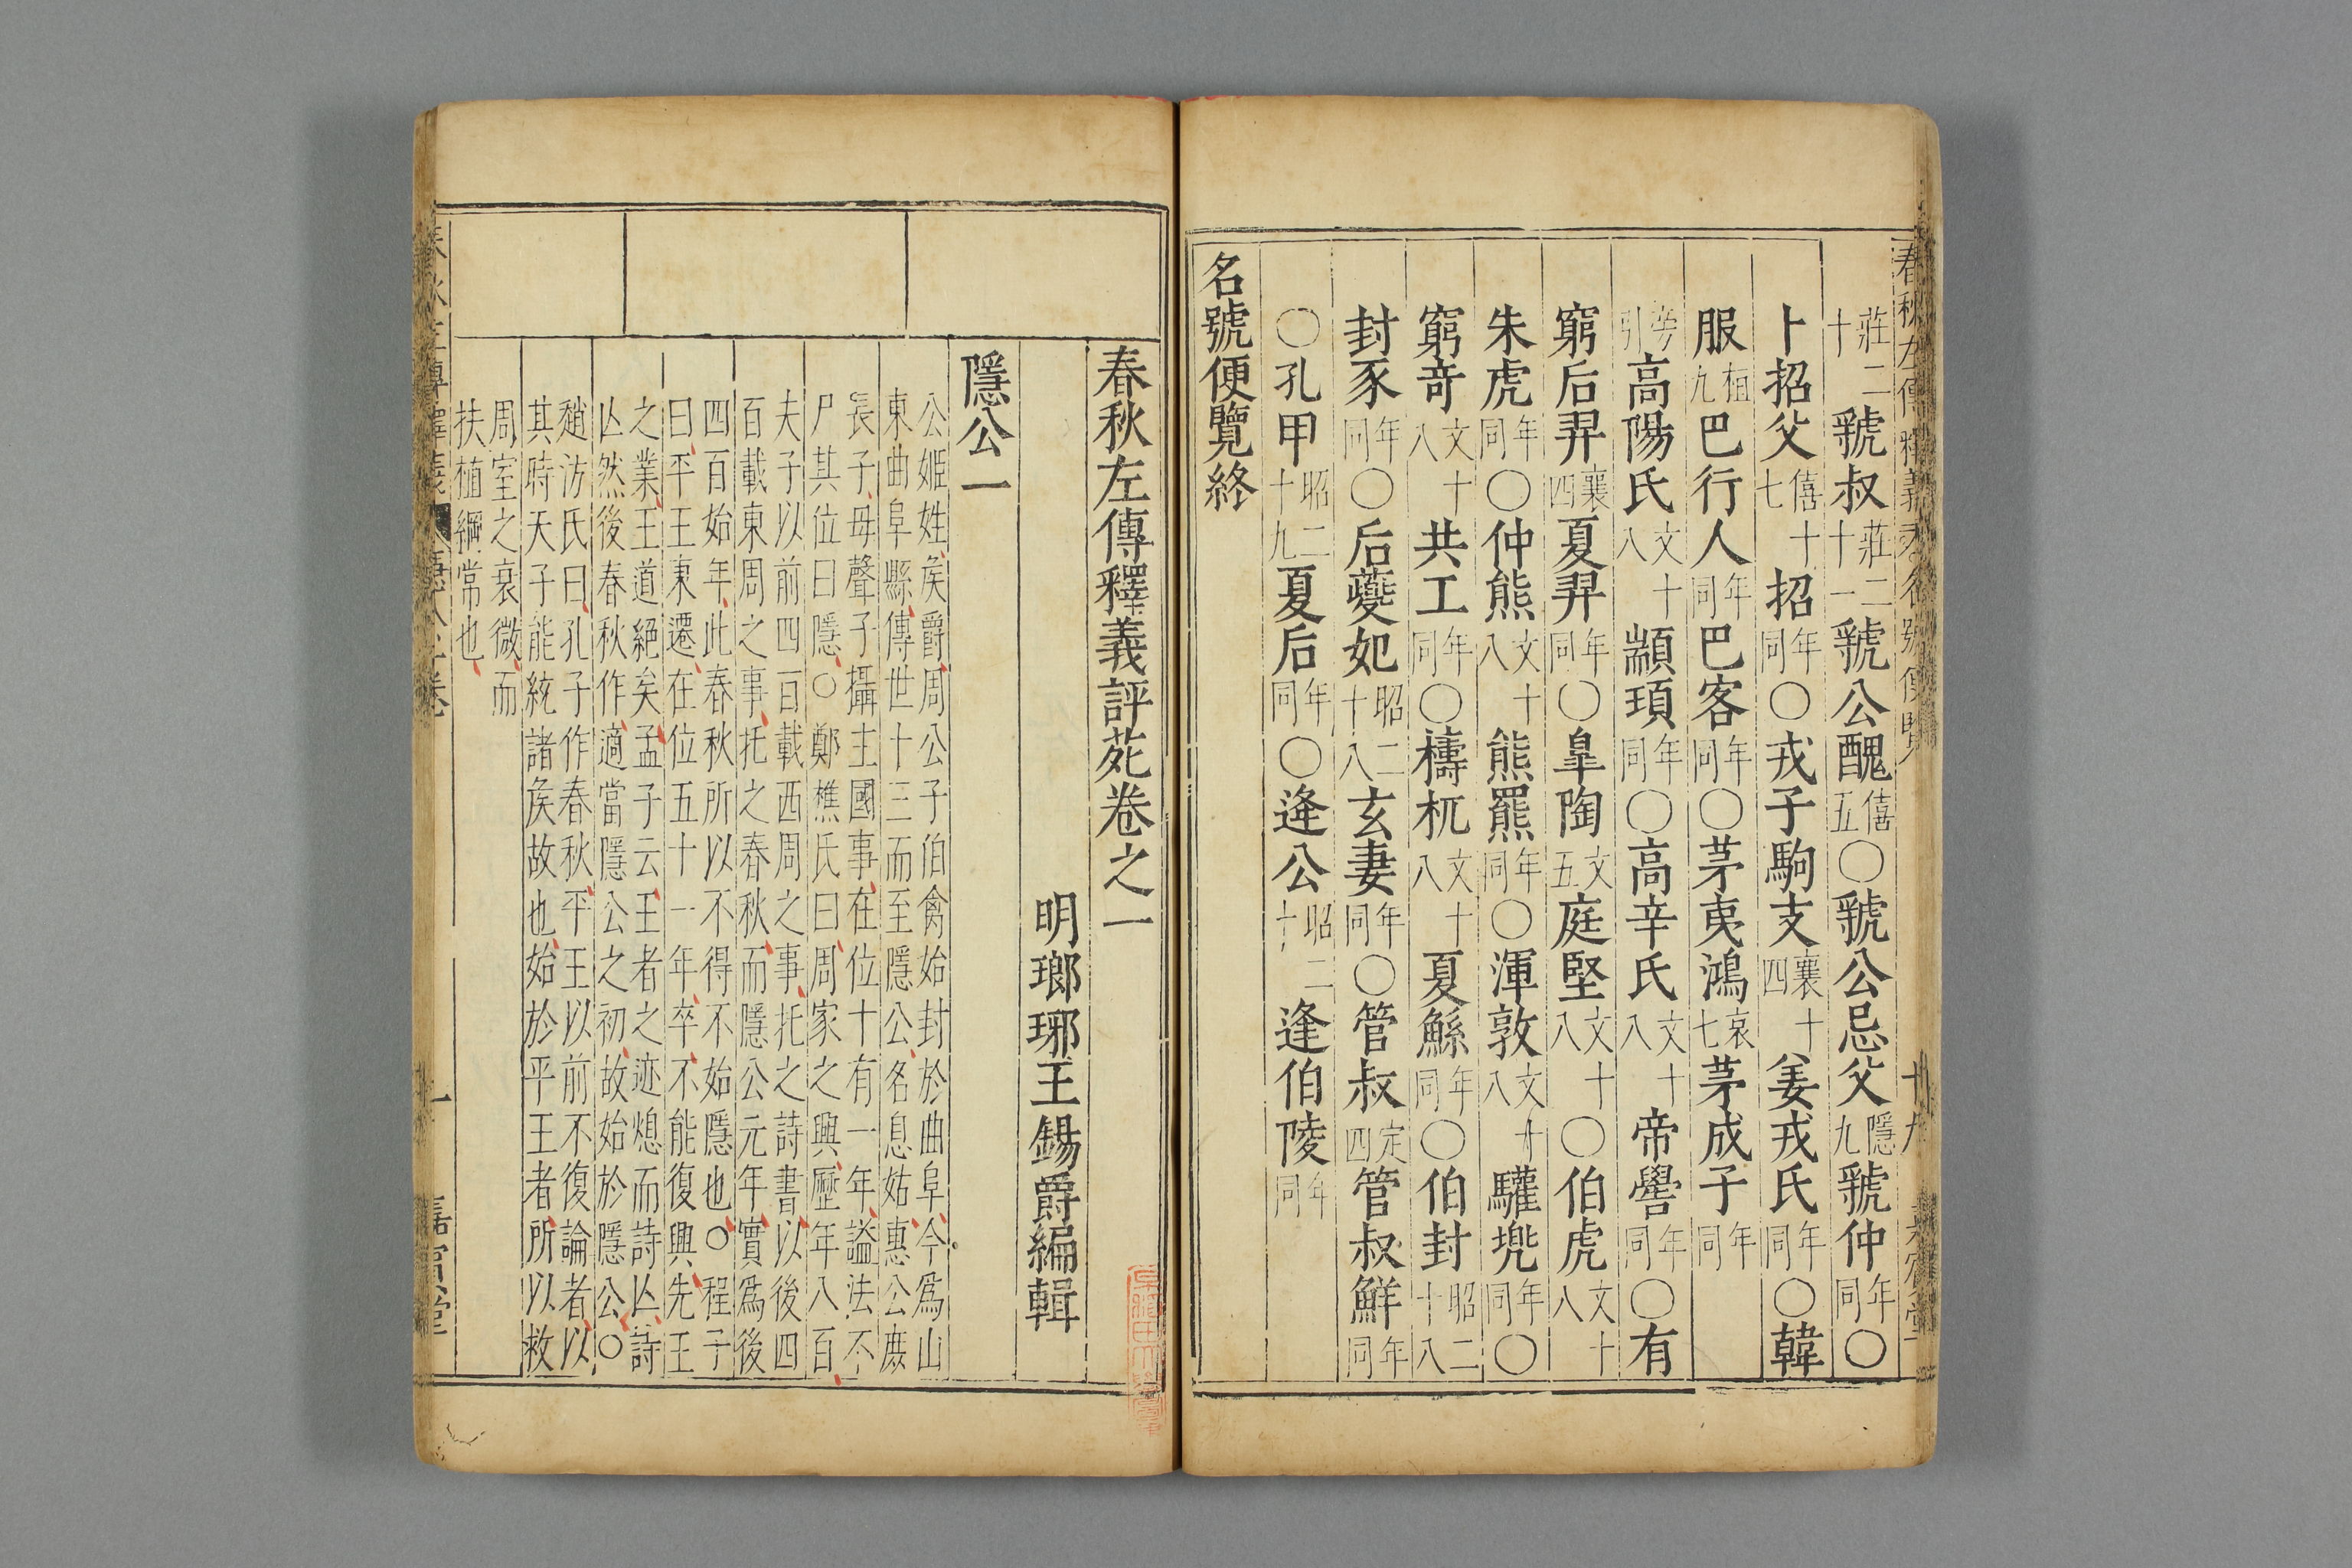 春秋左傳釋義 名號便覽 十九 嘉賓堂
莊二十虢叔莊二十一虢公醜僖五〇虢公忌父隱九虢仲同年〇
卜招父僖十七招同年〇戎子駒支襄十四姜戎氏同年〇韓
服桓九巴行人同年巴客同年〇茅夷鴻哀七茅成子同年
旁引高陽氏文十八顓頊同年〇高辛氏文十八帝嚳同年〇有
窮后羿襄四夏羿同年〇皐陶文五庭堅文十八〇伯虎文十八
朱虎同年〇仲熊文十八熊羆同年〇渾敦文十八驩兠同年〇
窮竒文十八共工同年〇檮杌文十八夏鯀同年〇伯封昭二十八
封豕同年〇后夔妃昭二十八玄妻同年〇管叔定四管叔鮮同年
〇孔甲昭二十九夏后同年〇逄公昭二十逢伯陵同年
名號便覽終
春秋左傳釋義評苑卷之一
明瑯琊王錫爵編輯
隱公一
公姬姓矦爵周公子伯禽始封於曲阜今爲山
東曲阜縣傳世十三而至隱公名息姑惠公庶
長子母聲子攝主國事在位十有一年謚法不
尸其位曰隱〇鄭樵氏曰周家之興歷年八百
夫子以前四百載西周之事托之詩書以後四
百載東周之事托之春秋而隱公元年實爲後
四百始年此春秋所以不得不始隱也〇程子
曰平王東遷在位五十一年卒不能復興先王
之業王道絕矣孟子云王者之迹熄而詩亾詩
亾然後春秋作適當隱公之初故始於隱公〇
趙汸氏曰孔子作春秋平王以前不復論者以
其時天子能統諸矦故也始於平王者所以救
周室之衰微而
扶植綱常也
春秋左傳釋義 一 嘉賓堂